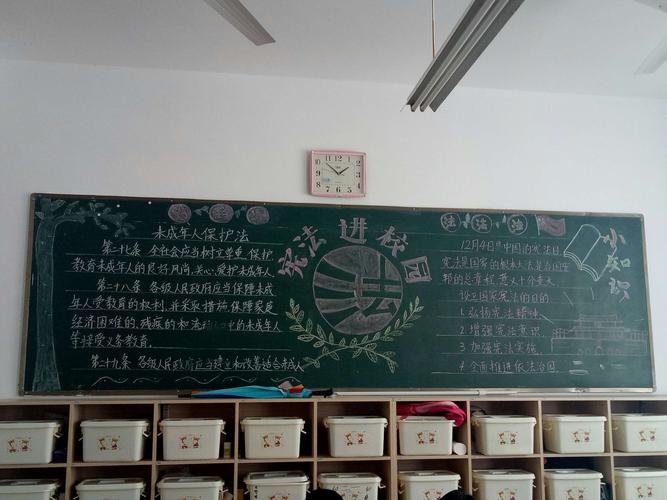 宪法进校园
未成年人保护法
第二十七条 全社会应当树立尊重、保护、
教育未成年人的良好风尚,关心、爱护未成年人
第二十八条 各级人民政府应当保障未成
年人受教育的权利,并采取措施保障家庭
经济困难的、残疾的和流动人口中的未成年人
等接受义务教育
第二十九条 各级人民政府应当建立和改善适合未成人
法 治
小知识
12月4日 中国的宪法日
宪法是国家的根本大法是治国安
邦的总章程 意义十分重大
设立国家宪法日的目的
1.弘扬宪法精神
2.增强宪法意识
3.加强宪法实施
4.全面推进依法治国